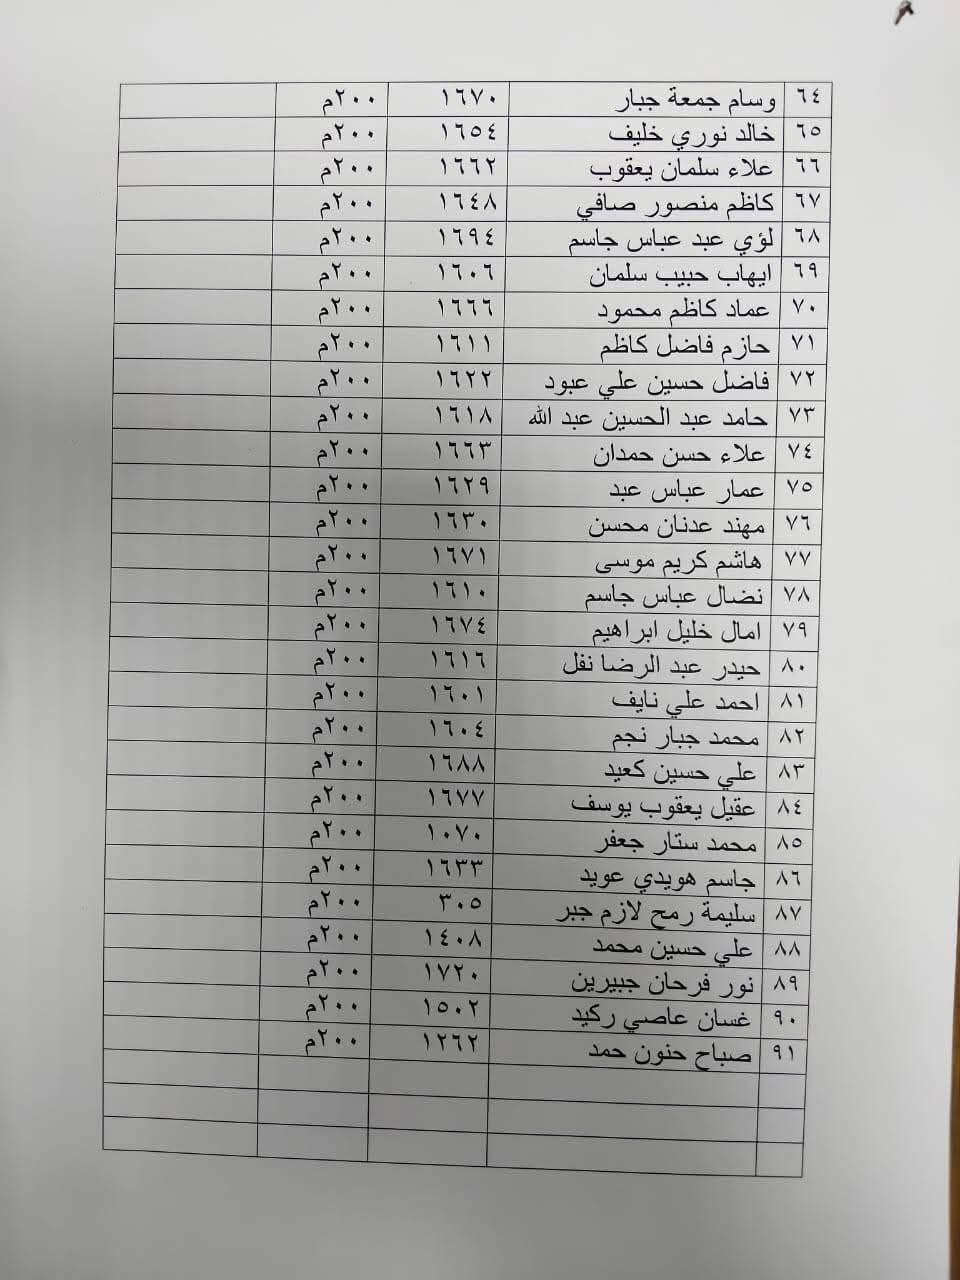 ٦٤ وسام جمعة جبار ١٦٧٠ ٢٠٠م
٦٥ خالد نوري خليف ١٦٥٤ ٢٠٠م
٦٦ علاء سلمان يعقوب ١٦٦٢ ٢٠٠م
٦٧ كاظم منصور صافي ١٦٤٨ ٢٠٠م
٦٨ لؤي عبد عباس جاسم ١٦٩٤ ٢٠٠م
٦٩ ايهاب حبيب سلمان ١٦٠٦ ٢٠٠م
٧٠ عماد كاظم محمود ١٦٦٦ ٢٠٠م
٧١ حازم فاضل كاظم ١٦١١ ٢٠٠م
٧٢ فاضل حسين علي عبود ١٦٢٢ ٢٠٠م
٧٣ حامد عبد الحسين عبد الله ١٦١٨ ٢٠٠م
٧٤ علاء حسن حمدان ١٦٦٣ ٢٠٠م
٧٥ عمار عباس عبد ١٦٢٩ ٢٠٠م
٧٦ مهند عدنان محسن ١٦٣٠ ٢٠٠م
٧٧ هاشم كريم موسى ١٦٧١ ٢٠٠م
٧٨ نضال عباس جاسم ١٦١٠ ٢٠٠م
٧٩ امال خليل ابراهيم ١٦٧٤ ٢٠٠م
٨٠ حيدر عبد الرضا نفل ١٦١٦ ٢٠٠م
٨١ احمد علي نايف ١٦٠١ ٢٠٠م
٨٢ محمد جبار نجم ١٦٠٤ ٢٠٠م
٨٣ علي حسين كعيد ١٦٨٨ ٢٠٠م
٨٤ عقيل يعقوب يوسف ١٦٧٧ ٢٠٠م
٨٥ محمد ستار جعفر ١٠٧٠ ٢٠٠م
٨٦ جاسم هويدي عويد ١٦٣٣ ٢٠٠م
٨٧ سليمة رمح لازم جبر ٣٠٥ ٢٠٠م
٨٨ علي حسين محمد ١٤٠٨ ٢٠٠م
٨٩ نور فرحان جبيرين ١٧٢٠ ٢٠٠م
٩٠ غسان عاصي ركيد ١٥٠٢ ٢٠٠م
٩١ صباح حنون حمد ١٢٦٢ ٢٠٠م